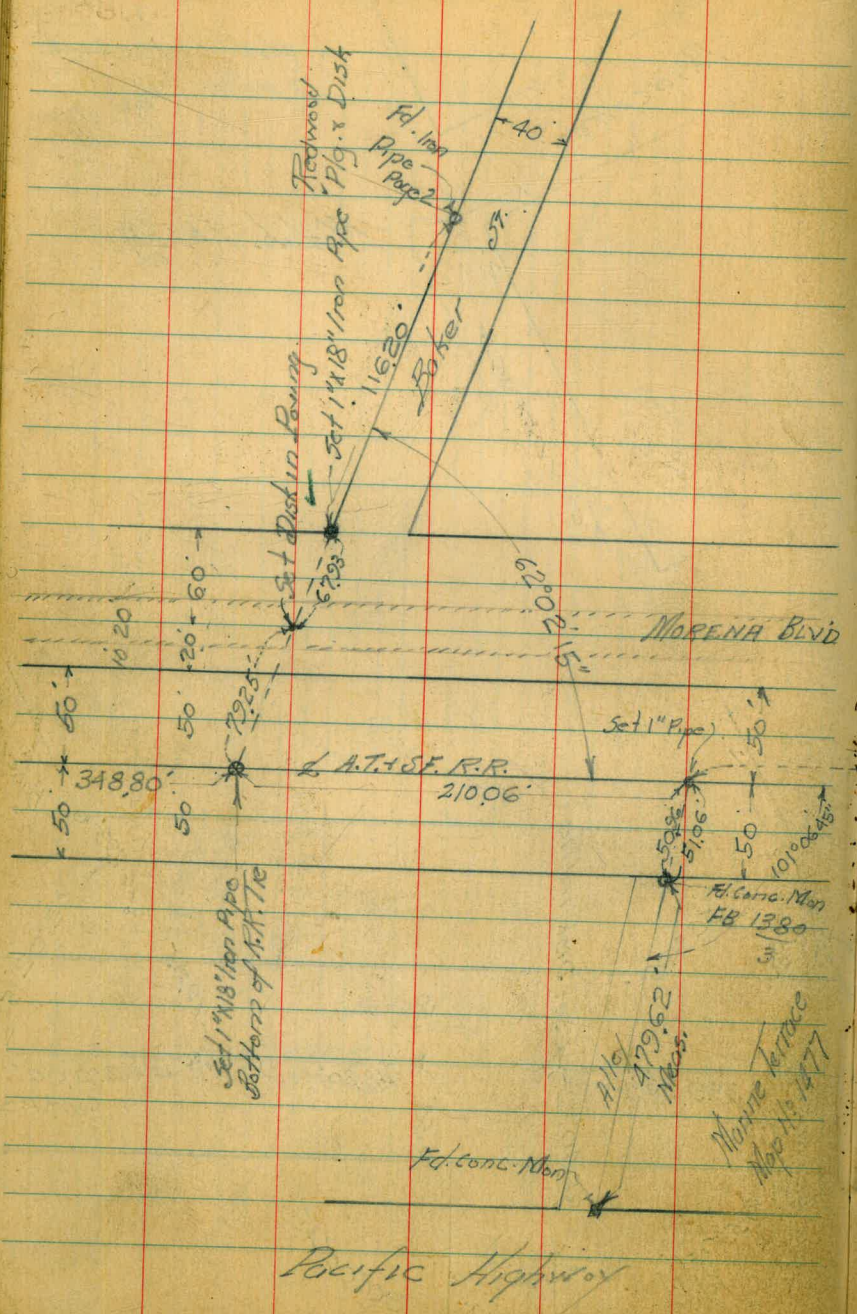 Redwood
Set 1"X18" Iron Pipe Plg. & Disk
Fd. Iron
Pipe
Page 2
40'
St.
Baker
116.20'
Set Disk in Paving
67.93
60'
20'
10' 20'
MORENA BLVD
70° 29' 15"
50'
50'
79.25'
Set 1" Pipe
50'
348.80'
℄ A.T. & S.F. R.R.
210.06'
50
50
51.06'
50'
101° 06' 45"
Fd. Conc. Mon
FB 1380
Set 1"X18" Iron Pipe
Bottom of R.R. Tie
Alley
479.62'
Meas.
Marine Terrace
Map No. 1477
Fd. Conc. Mon
Pacific Highway